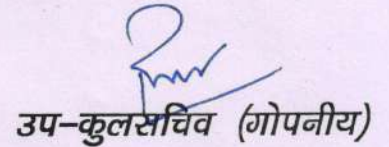 उप-कुलसचिव (गोपनीय)